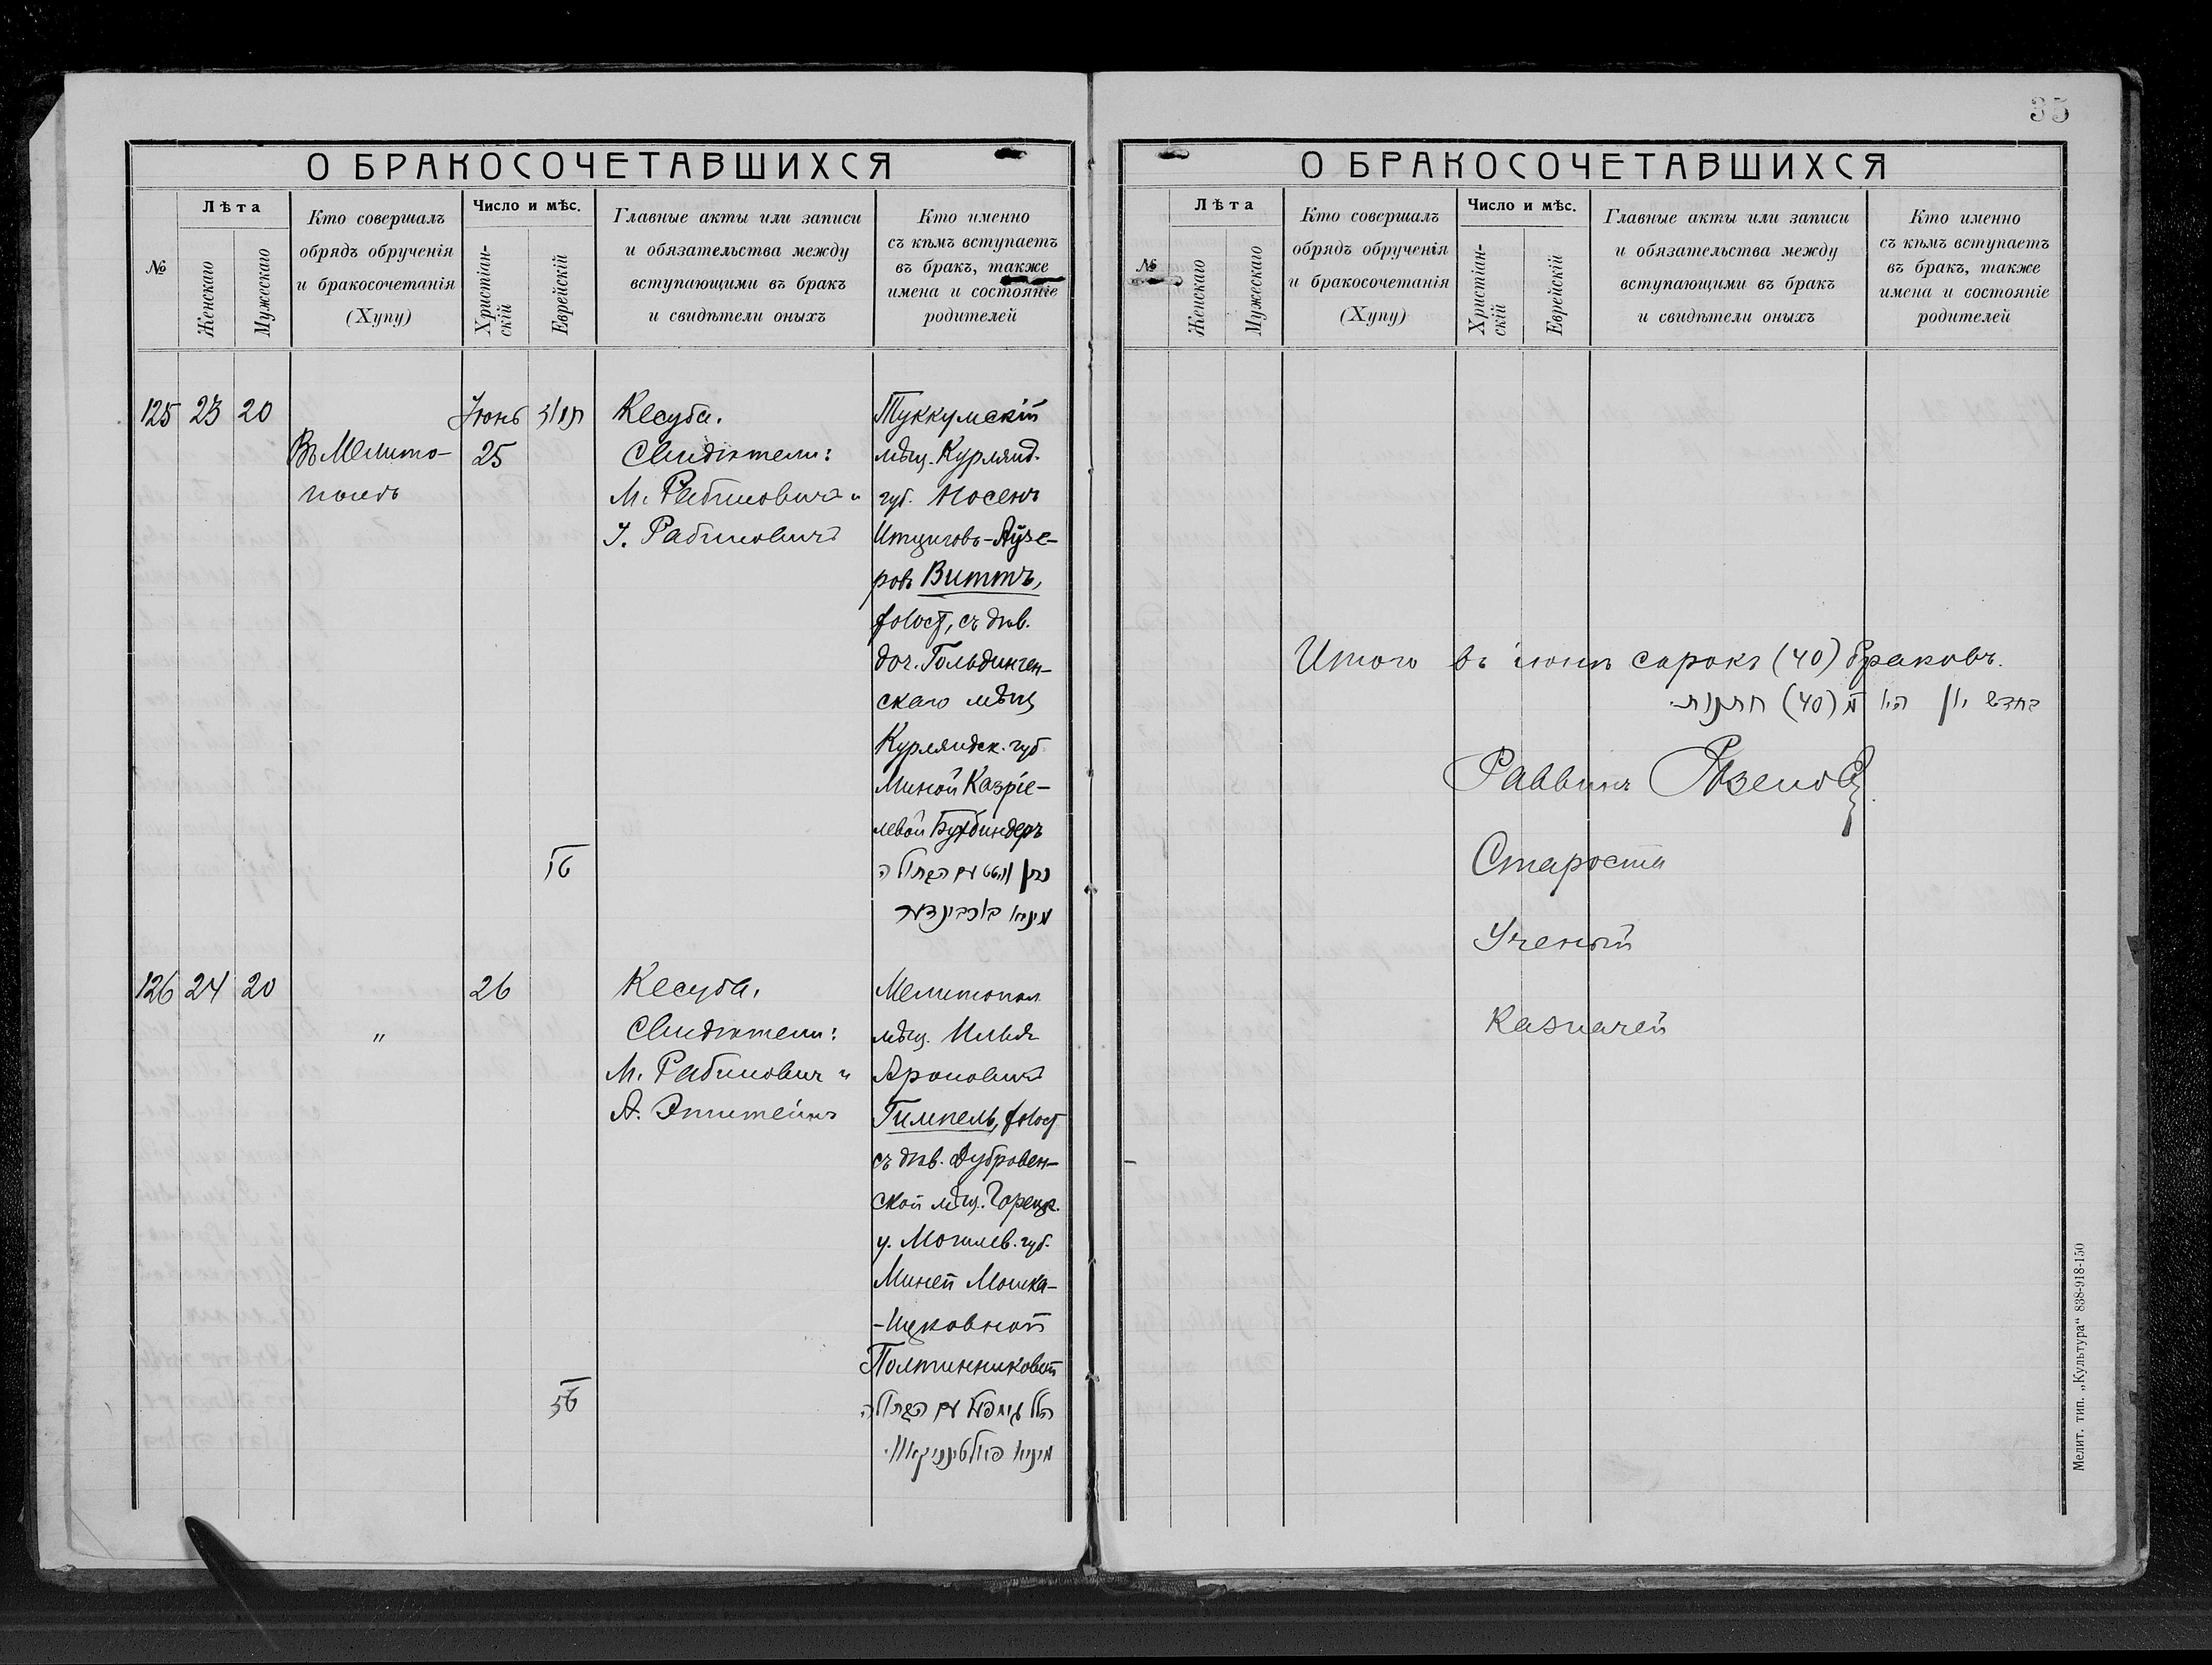 35
О БРАКОСОЧЕТАВШИХСЯ
№
Лѣта
Женскаго
Мужескаго
Кто совершалъ
обрядъ обрученія
и бракосочетанія
(Хупу)
Число и мѣс.
Христіан-
скій
Еврейскій
Главные акты или записи
и обязательства между
вступающими въ бракъ
и свидѣтели оныхъ
Кто именно
съ кѣмъ вступаетъ
въ бракъ, также
имена и состояніе
родителей
125 23 20
Въ Мелито-
полѣ
Іюнь
25
Кесуба.
Свидѣтели:
М. Рабиновичъ и
І. Рабиновичъ
Туккумскій
мѣщ. Курлянд.
губ. Носенъ
Ицковъ-Лузе-
ровъ Виттъ,
холост, съ дѣв.
доч. Гольдинген-
скаго мѣщ
Курляндск. губ
Миной Казріе-
левой Бухбиндеръ
נתן וויטט עם הבתולה
מינא בוכבינדער
126 24 20
"
26
Кесуба.
Свидѣтели:
М. Рабинович и
А. Эпштейнъ
Мелитопол
мѣщ. Илья
Ароновичъ
Гимпель, холост
съ дѣв. Дубровен-
ской мѣщ. Горецк.
у. Могилев. губ.
Миней Мошка-
-Ицковной
Полтинниковой
הלל גימפעל עם הבתולה
О БРАКОСОЧЕТАВШИХСЯ
№
Лѣта
Женскаго
Мужескаго
Кто совершалъ
обрядъ обрученія
и бракосочетанія
(Хупу)
Число и мѣс.
Христіан-
скій
Еврейскій
Главные акты или записи
и обязательства между
вступающими въ бракъ
и свидѣтели оныхъ
Кто именно
съ кѣмъ вступаетъ
въ бракъ, также
имена и состояніе
родителей
Итого въ іюнѣ сорокъ (40) браковъ.
בחדש יון היו מ (40) חתונות
Раввинъ
Староста
Ученый
Казначей
Мелит. тип. „Культура“ 838-918-150